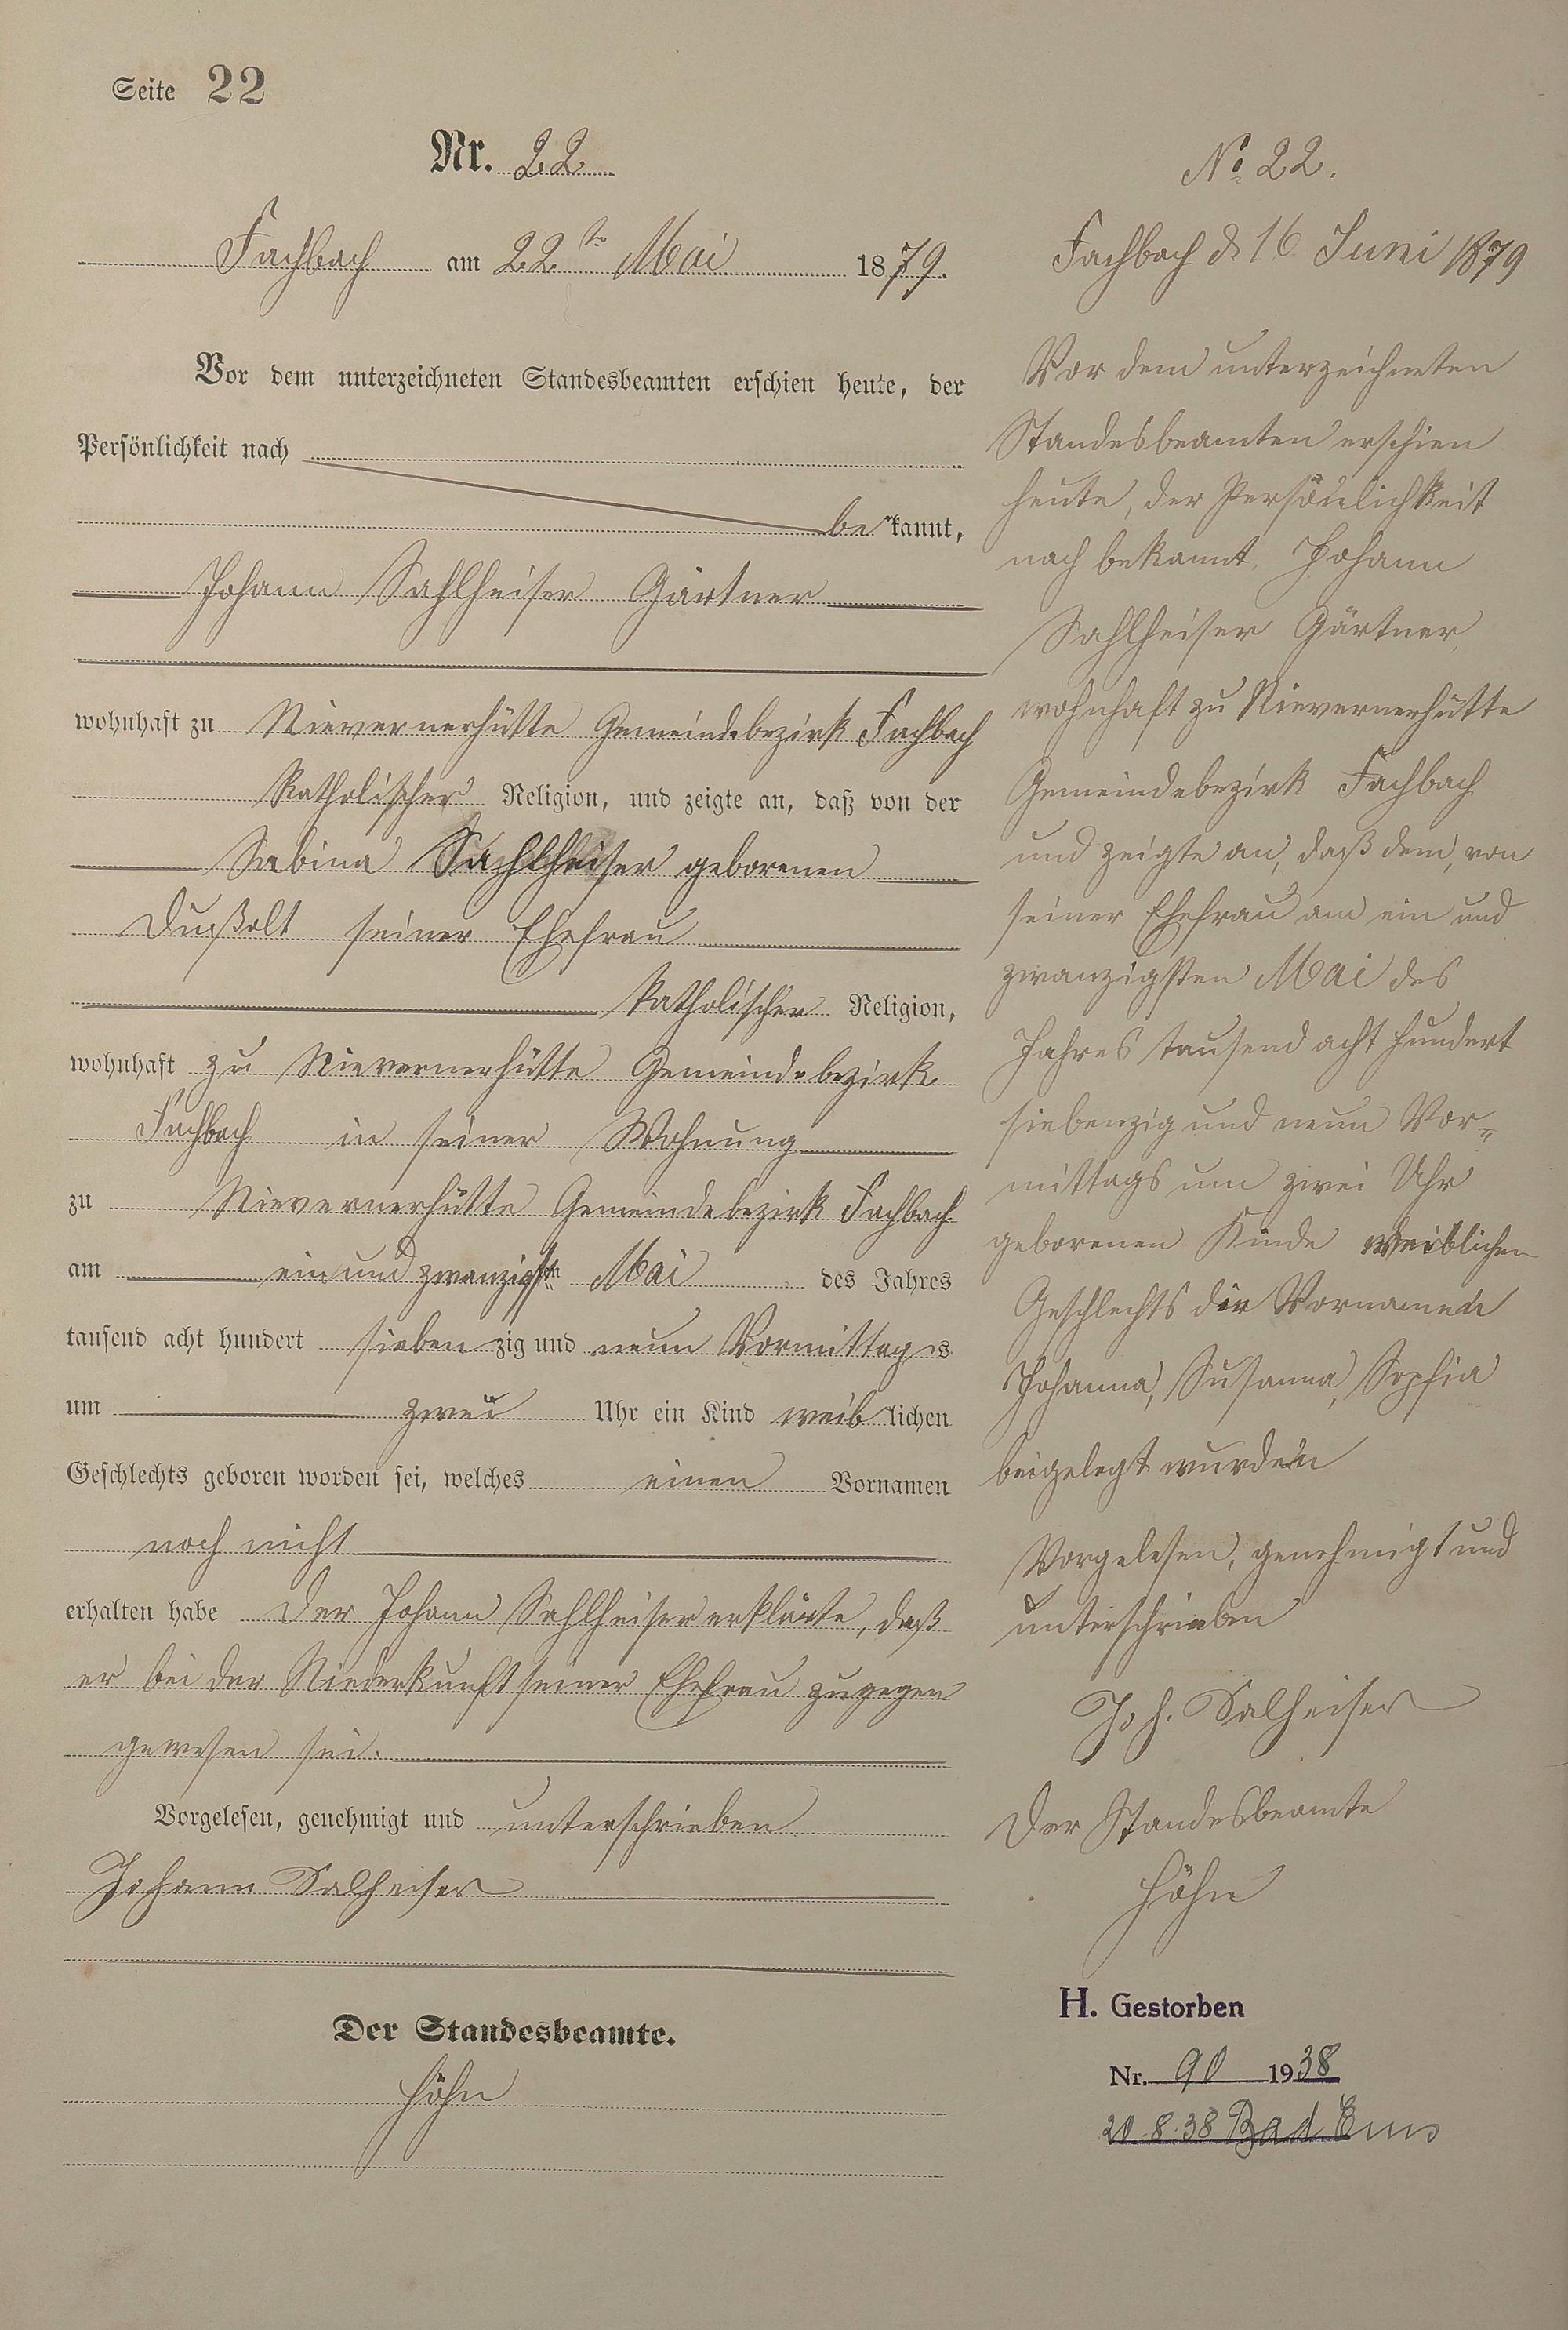 Seite 22
Nr. 22
Fachbach am 22ten Mai 1879.
Vor dem unterzeichneten Standesbeamten erschien heute, der
Persönlichkeit nach
bekannt,
Johann Sahlheiser Gärtner
wohnhaft zu Nievernerhütte Gemeindebezirk Fachbach
Katholischer Religion, und zeigte an, daß von der
Sabina Sahlheiser geborenen
seiner Ehefrau
katholischer Religion,
wohnhaft zu Nievernerhütte Gemeindebezirk
Fachbach in seiner Wohnung
zu Nievernerhütte Gemeindebezirk Fachbach
am ein und zwanzigsten Mai des Jahres
tausend acht hundert siebenzig und neun Vormittags
um zwei Uhr ein Kind weiblichen
Geschlechts geboren worden sei, welches einen Vornamen
noch nicht
erhalten habe Der Johann Sahlheiser erklärte, daß
er bei der Niederkunft seiner Ehefrau zugegen
gewesen sei.
Vorgelesen, genehmigt und unterschrieben
Johann Salheiser
Der Standesbeamte.
Höhn
No 22.
Fachbach d. 16 Juni 1879
Vor dem unterzeichneten
Standesbeamten erschien
heute, der Persönlichkeit
nach bekannt, Johann
Sahlheiser Gärtner,
wohnhaft zu Nievernerhütte
Gemeindebezirk Fachbach
und zeigte an, daß dem, von
seiner Ehefrau am ein und
zwanzigsten Mai des
Jahres tausend acht hundert
siebenzig und neun Vor=
mittags um zwei Uhr
geborenen Kinde weiblichen
Geschlechts die Vornamen
Johanna, Susanna, Sophia
beigelegt wurden
Vorgelesen, genehmigt und
unterschrieben
Joh. Salheiser
Der Standesbeamte
Höhn
H. Gestorben
Nr. 90 1938
20.8.38 Bad Ems